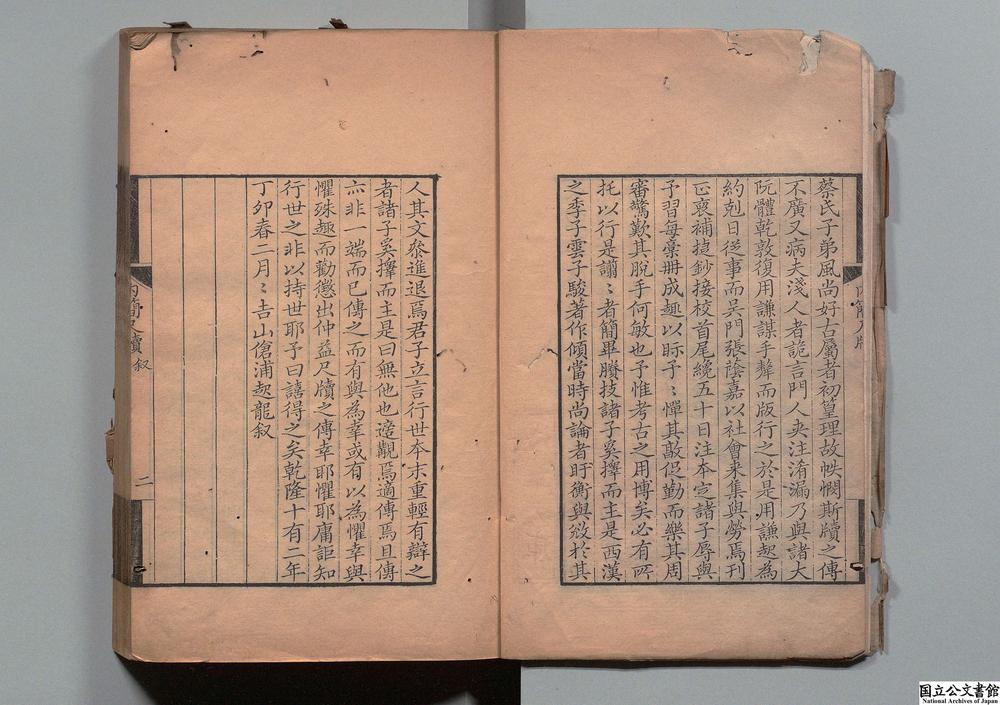 蔡氏子弟風尚好古屬者初篁理故帙憫斯牘之傳
不廣又病夫淺人者詭言門人夾注淆漏乃與諸大
阮體乾敦復用謙謀手讎而版行之於是用謙趂為
約剋日從事而吳門張蔭嘉以社會来集與勞焉刊
㱏裒補㨗鈔接校首尾纔五十日注本定諸子辱與
予習每藁冊成趣以眎予〻憚其敦促勤而樂其周
審驚歎其脫手何敏也予惟考古之用博矣必有所
托以行是謭〻者簡畢賸技諸子奚擇而主是西漢
之季子雲子駿著作傾當時尚論者盱衡與效於其
人其文叅進退焉君子立言行世夲末重輕有辯之
者諸子奚擇而主是曰無他也遊觀焉適傳焉且傳
亦非一端而已傳之而有與為幸或有以為懼幸與
懼殊趣而勸懲出仲益尺牘之傳幸耶懼耶庸詎知
行世之非以持世耶予曰譆得之矣乾隆十有二年
丁卯春二月〻吉山傖浦起龍叙
內簡尺牘 叙
二
国立公文書館
National Archives of Japan